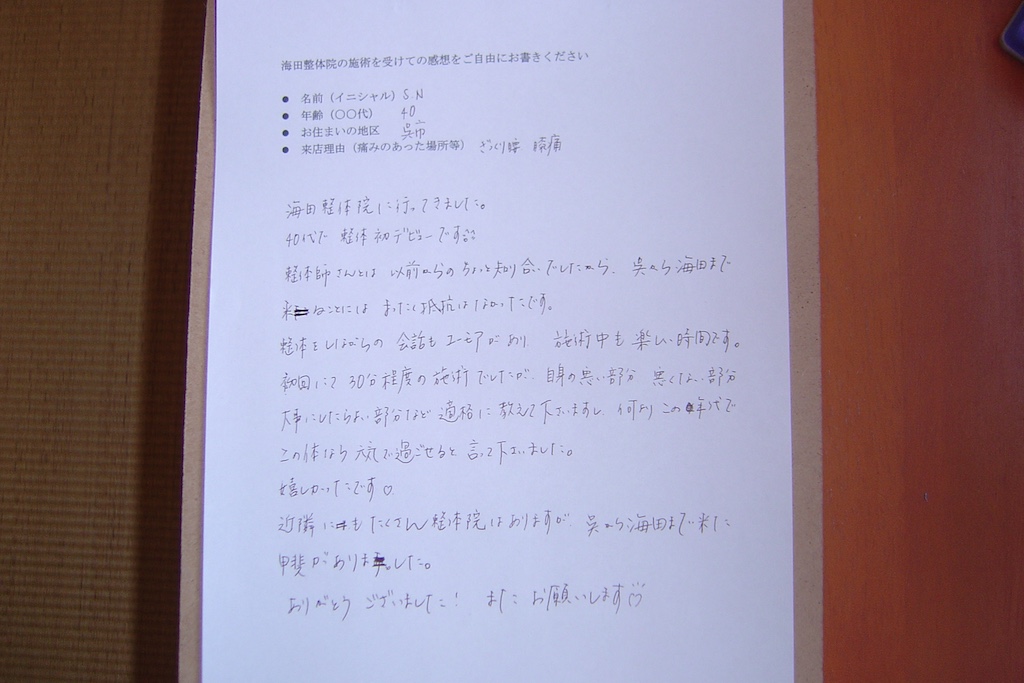 海田整体院の施術を受けての感想をご自由にお書きください
● 名前（イニシャル） S.N
● 年齢（〇〇代） 40
● お住まいの地区 呉市
● 来店理由（痛みのあった場所等） ぎっくり腰 膝痛
海田整体院に行ってきました。
40代で 整体初デビューです
整体師さんとは 以前からのちょっと知り合いでしたから、呉から海田まで
来ることには まったく抵抗はなかったです。
整体をしながらの 会話もユーモアがあり 施術中も 楽しい時間です。
初回にて 30分程度の施術でしたが、自身の悪い部分 悪くない部分
大事にしたらよい部分など 適格に 教えて下さいますし、何より この年代で
この体なら 元気で過ごせると 言って下さいました。
嬉しかったです♡
近隣にもたくさん整体院はありますが、呉から海田まで来た
甲斐がありました。
ありがとう ございました！ また お願いします♡